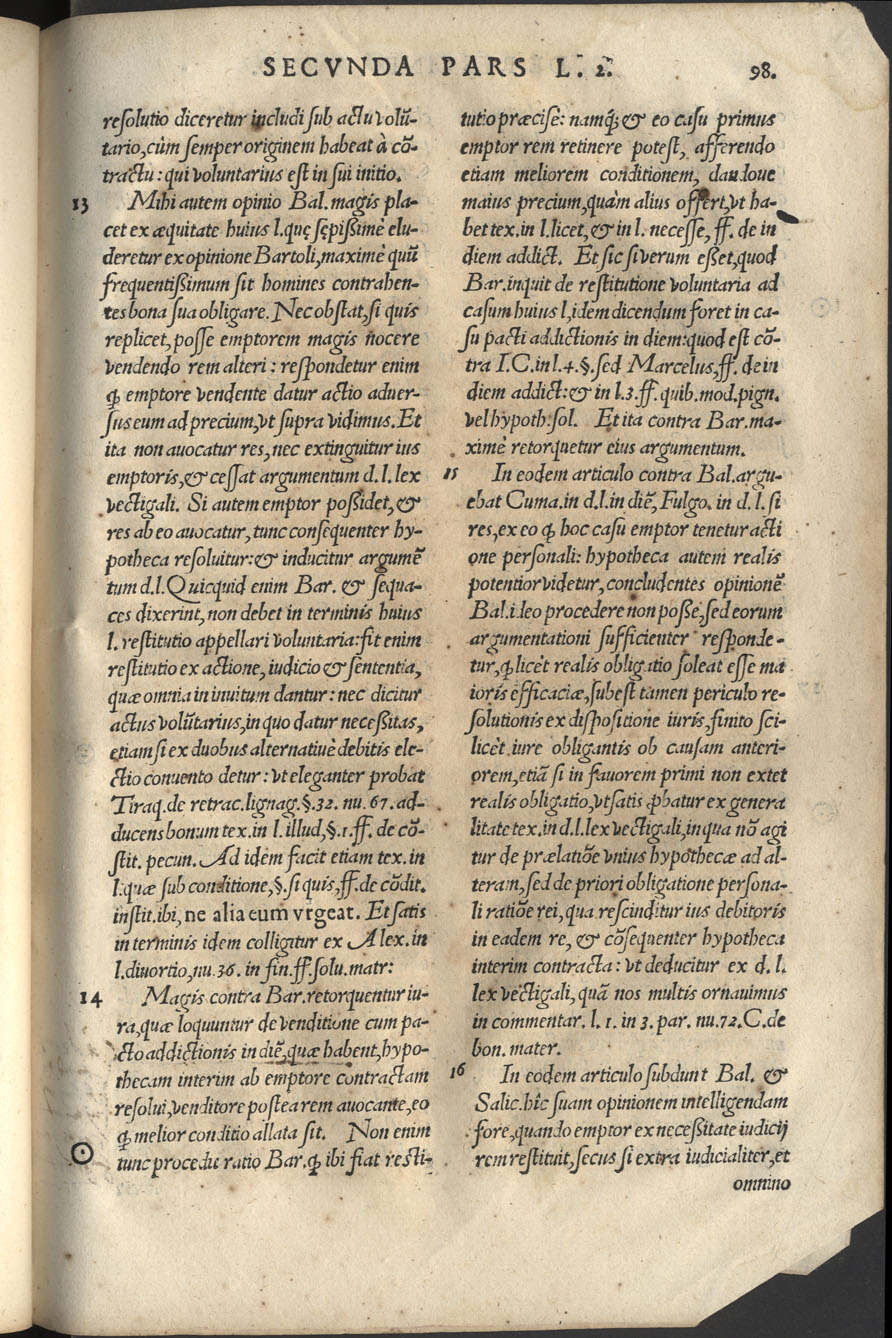 SECVNDA PARS L. 2.
98.
resolutio diceretur includi sub actu volũ-
tario, cùm semper originem habeat à cõ-
tractu: qui voluntarius est in sui initio.
13
Mihi autem opinio Bal. magis pla-
cet ex æquitate huius l. quę sępißimè elu-
deretur ex opinione Bartoli, maximè quũ
frequentißimum sit homines contrahen-
tes bona sua obligare. Nec obstat, si quis
replicet, posse emptorem magis nocere
vendendo rem alteri: respondetur enim
ꝙ emptore vendente datur actio aduer-
sus eum ad precium, vt supra vidimus. Et
ita non auocatur res, nec extinguitur ius
emptoris, & cessat argumentum d. l. lex
vectigali. Si autem emptor poßidet, &
res ab eo auocatur, tunc consequenter hy-
potheca resoluitur: & inducitur argumẽ
tum d. l. Quicquid enim Bar. & sequa-
ces dixerint, non debet in terminis huius
l. restitutio appellari voluntaria: fit enim
restitutio ex actione, iudicio & sententia,
quæ omnia in inuitum dantur: nec dicitur
actus volũtarius, in quo datur neceßitas,
etiam si ex duobus alternatiuè debitis ele-
ctio conuento detur: vt eleganter probat
Tiraq. de retrac. lignag. §. 32. nu. 67. ad-
ducens bonum tex. in l. illud, §. 1. ff. de cõ-
stit. pecun. Ad idem facit etiam tex. in
l. quæ sub conditione, §. si quis, ff. de cõdit.
instit. ibi, ne alia eum vrgeat. Et satis
in terminis idem colligitur ex Alex. in
l. diuortio, nu. 36. in fin. ff. solu. matr:
14
Magis contra Bar. retorquentur iu-
ra, quæ loquuntur de venditione cum pa-
cto addictionis in diẽ, quæ habent, hypo-
thecam interim ab emptore contractam
resolui, venditore postea rem auocante, eo
ꝙ melior conditio allata sit. Non enim
tunc procedit ratio Bar. ꝙ ibi fiat resti-
tutio præcisè: namq́; & eo casu primus
emptor rem retinere potest, afferendo
etiam meliorem conditionem, dandoue
maius precium, quàm alius offert, vt ha-
bet tex. in l. licet, & in l. necesse, ff. de in
diem addict. Et sic si verum eßet, quod
Bar. inquit de restitutione voluntaria ad
casum huius l, idem dicendum foret in ca-
su pacti addictionis in diem: quod est cõ-
tra I. C. in l. 4. §. sed Marcelus, ff. de in
diem addict: & in l. 3. ff. quib. mod. pign.
vel hypoth. sol. Et ita contra Bar. ma-
ximè retorquetur eius argumentum.
15
In eodem articulo contra Bal. argu-
ebat Cuma. in d. l. in diẽ, Fulgo. in d. l. si
res, ex eo ꝙ hoc casu emptor tenetur acti
one personali: hypotheca autem realis
potentior videtur, concludentes opinionẽ
Bal. ideo procedere non poße, sed eorum
argumentationi sufficienter responde-
tur, ꝙ licèt realis obligatio soleat esse ma
ioris efficaciæ, subest tamen periculo re-
solutionis ex dispositione iuris, finito sci-
licèt iure obligantis ob causam anteri-
orem, etiã si in fauorem primi non extet
realis obligatio, vt satis ꝓbatur ex genera
litate tex. in d. l. lex vectigali, in qua nõ agi
tur de prælatiõe vnius hypothecæ ad al-
teram, sed de priori obligatione persona-
li ratiõe rei, qua rescinditur ius debitoris
in eadem re, & cõsequenter hypotheca
interim contracta: vt deducitur ex d. l.
lex vectigali, quã nos multis ornauimus
in commentar. l. 1. in 3. par. nu. 72. C. de
bon. mater.
16
In eodem articulo subdunt Bal. &
Salic. hîc suam opinionem intelligendam
fore, quando emptor ex neceßitate iudicij
rem restituit, secus si extra iudicialiter, et
omnino